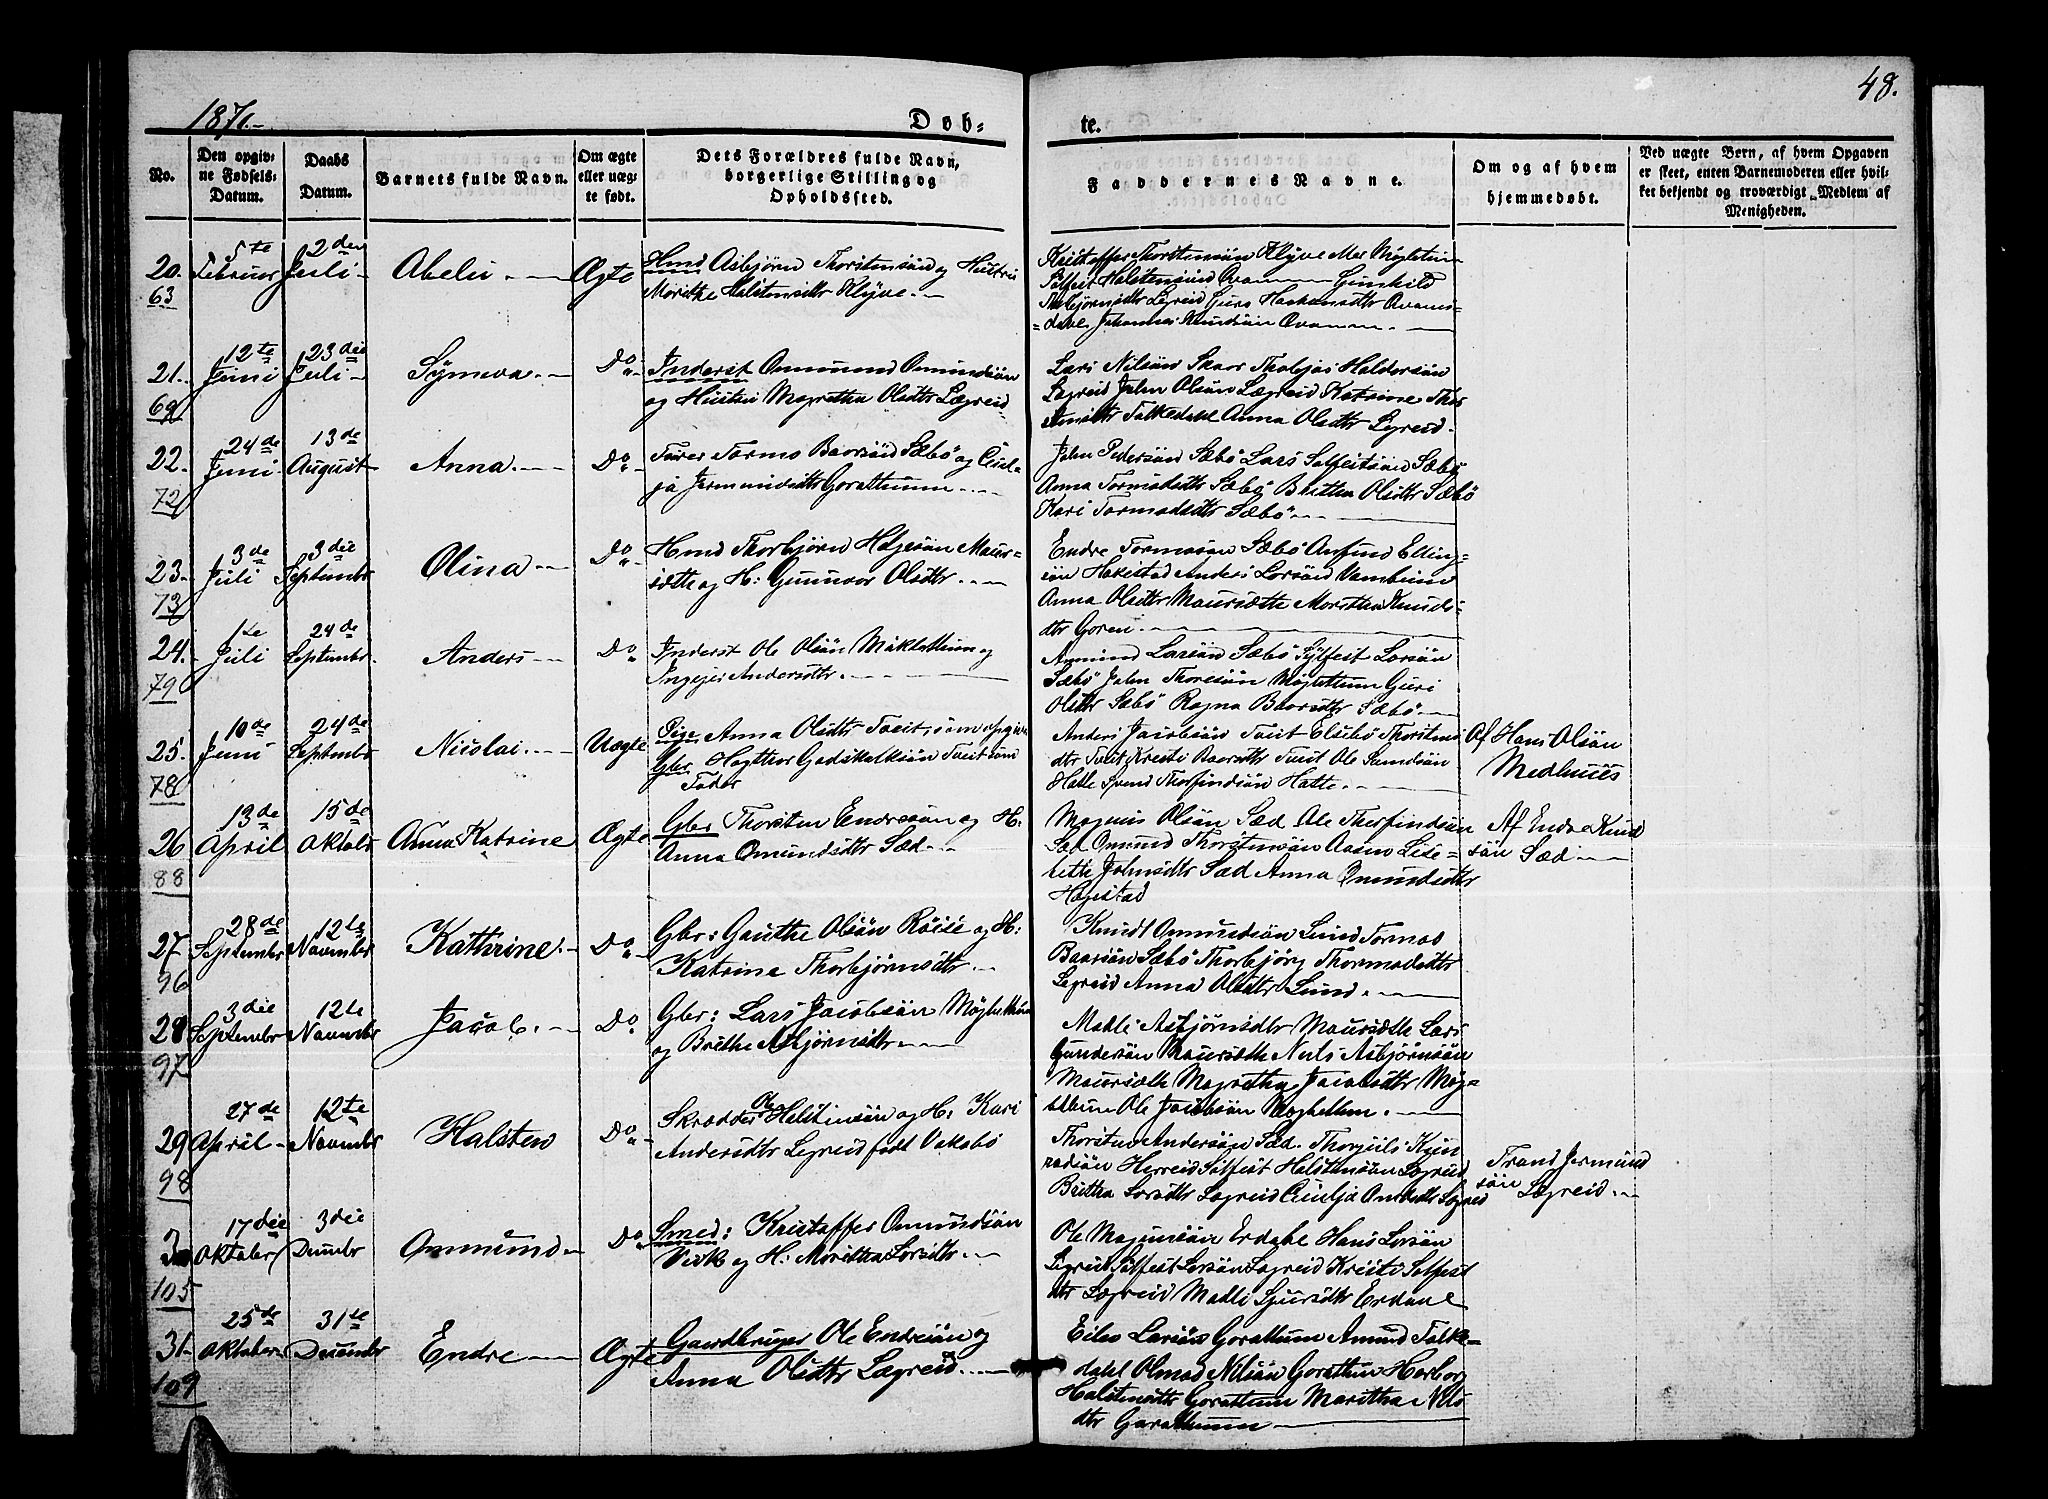 1871.-
48.
Døb-
te.
No.
Den opgiv-
ne Fødsels-
Datum.
Daabs
Datum.
Barnets fulde Navn.
Om ægte
eller uæg-
te født.
Dets Forældres fulde Navn,
borgerlige Stilling og
Opholdssted.
Faddernes Navne.
Om og af hvem
hjemmedøbt.
Ved uægte Børn, af hvem Opgaven
er skeet, enten Barnemoderen eller hvil-
ket bekjendt og troværdigt Medlem af
Menigheden.
20.
63
5te
Februar
2den
Juli
Abelu
Ægte
Asbjørn Thorstensøn og Hustru
Marithe Halstensdtr Kløve.
Kristoffer Thorstensøn Kløve
Halstensøn Qvamm Gunhild
Asbjørnsdtr Legreid Guro Haakensdtr Qvams-
dale Johannes Knudsøn Qvamm.
21.
69
12te
Juni
23die
Juli
Synneva
Do
Inderst Ommund Omundsøn
og Hustru Magretha Olsdtr Lægreid
Lars Nilsøn Skaar Haldorsøn
Legreid John Olsøn Lægreid Katrine
Falkedale Anna Olsdtr Legreid.
22.
72
24de
Juni
13de
August
Anna
Do
Tormo Baarsøn Sæbø og
Jermundsdtr Garatthuum
John Pedersøn Sæbø Lars Solfestsøn Sæbø
Anna Tormodsdtr Sæbø Brittha Olsdtr Sæbø
Kari Tormodsdtr Sæbø
23.
73
3de
Juli
3die
Septembr
Olina
Do
Thorbjørn Helgesøn Maur-
sætte og H: Gunnvor Olsdtr.
Endre Tormosøn Sæbø Amund Elling-
søn Anders Larsøn
Anna Olsdtr Maursætte Maritha Knuds-
dtr Goren.
24.
79
1te
Juli
24de
Septembr.
Anders
Do
Inderst Ole Olsøn og
Andersdtr.
Ammund Larsøn Sæbø Sylfest Larsøn
Sæbø John Thoresøn Møglettum Guri
Olsdtr Sæbø Ragna Baarsdtr Sæbø
25.
78
10de
Juni
24de
Septembr
Nicolai
Uægte
Pige Anna Olsdtr Tveit, som opgiver
Gbr. Godskalksøn Tveit som
Fader
Anders Jacobsøn Tveit Elsebø Thorstens
dtr Tveit Kristi Baarsdtr Tveit Ole
Svend Thorfindsøn
Af Hans Olsøn
Medhuus
26
88
13de
April
15de
Oktobr
Anna Katrine
Ægte
Gbr. Thorsten Endresøn og H:
Anna Omundsdtr Sæd
Magnus Olsøn Sæd Ole Thorfindsøn
Sæd Omund Thorstensøn Aasen Lise-
bethe Johnsdtr Sæd Anna Omundsdtr
Hagestad
Af Endre Knud
søn Sæd
27
96
28de
Septembr
12te
Novembr
Kathrine
Do
Gbr: Gauthe Olsøn Røise og H:
Katrina Thorbjørnsdtr
Knudt Ommundsøn Lund Tormod
Baarsøn Sæbø Thorbjørg Thormodsdtr
Legreid Anna Olsdtr Lund.
28
97
3die
Septembr
12te
Novembr
Jacob
Do
Gbr: Lars Jacobsøn
og Brithe Asbjørnsdtr
Madli Asbjørnsdtr Maursæth Lars
Gundersøn Maursæth Nils Asbjørnsøn
Maursæth Magretha Jacobsdtr Møg-
Ole Jacobsøn
29
98
27de
April
12te
Novembr
Halsten
Do
Skrædder Ole Halstensøn og H: Kari
Andersdtr Legreid født Vaksbø
Thorsten Andersøn Sæd. Thorgiuls
Herreid Solfest Halstensøn Legreid
Brittha Larsdtr Legreid
Trond Jermund
søn
Lægreid.
30
105
17die
Oktober
3die
Decembr
Ommund
Do
Smed: Kristoffer Omundsøn
Viik og H: Marittha Larsdtr.
Ole Magnusøn Erdale Hans Larsøn
Legreid Solfest Larsøn Legreid Solfest
dtr Lægreid Madli Sjursdtr Erdale
31
109
25de
Oktober
31te
Decembr
Endre
Ægte
Gaardbruger Ole Endresøn og
Anna Olsdtr Lægreid.
Larsøn Garatthun Amund Falke-
dal Nilsøn Garatthun Herborg
Halstensdtr Garatthun Maritha Nils
dtr Garatthuun